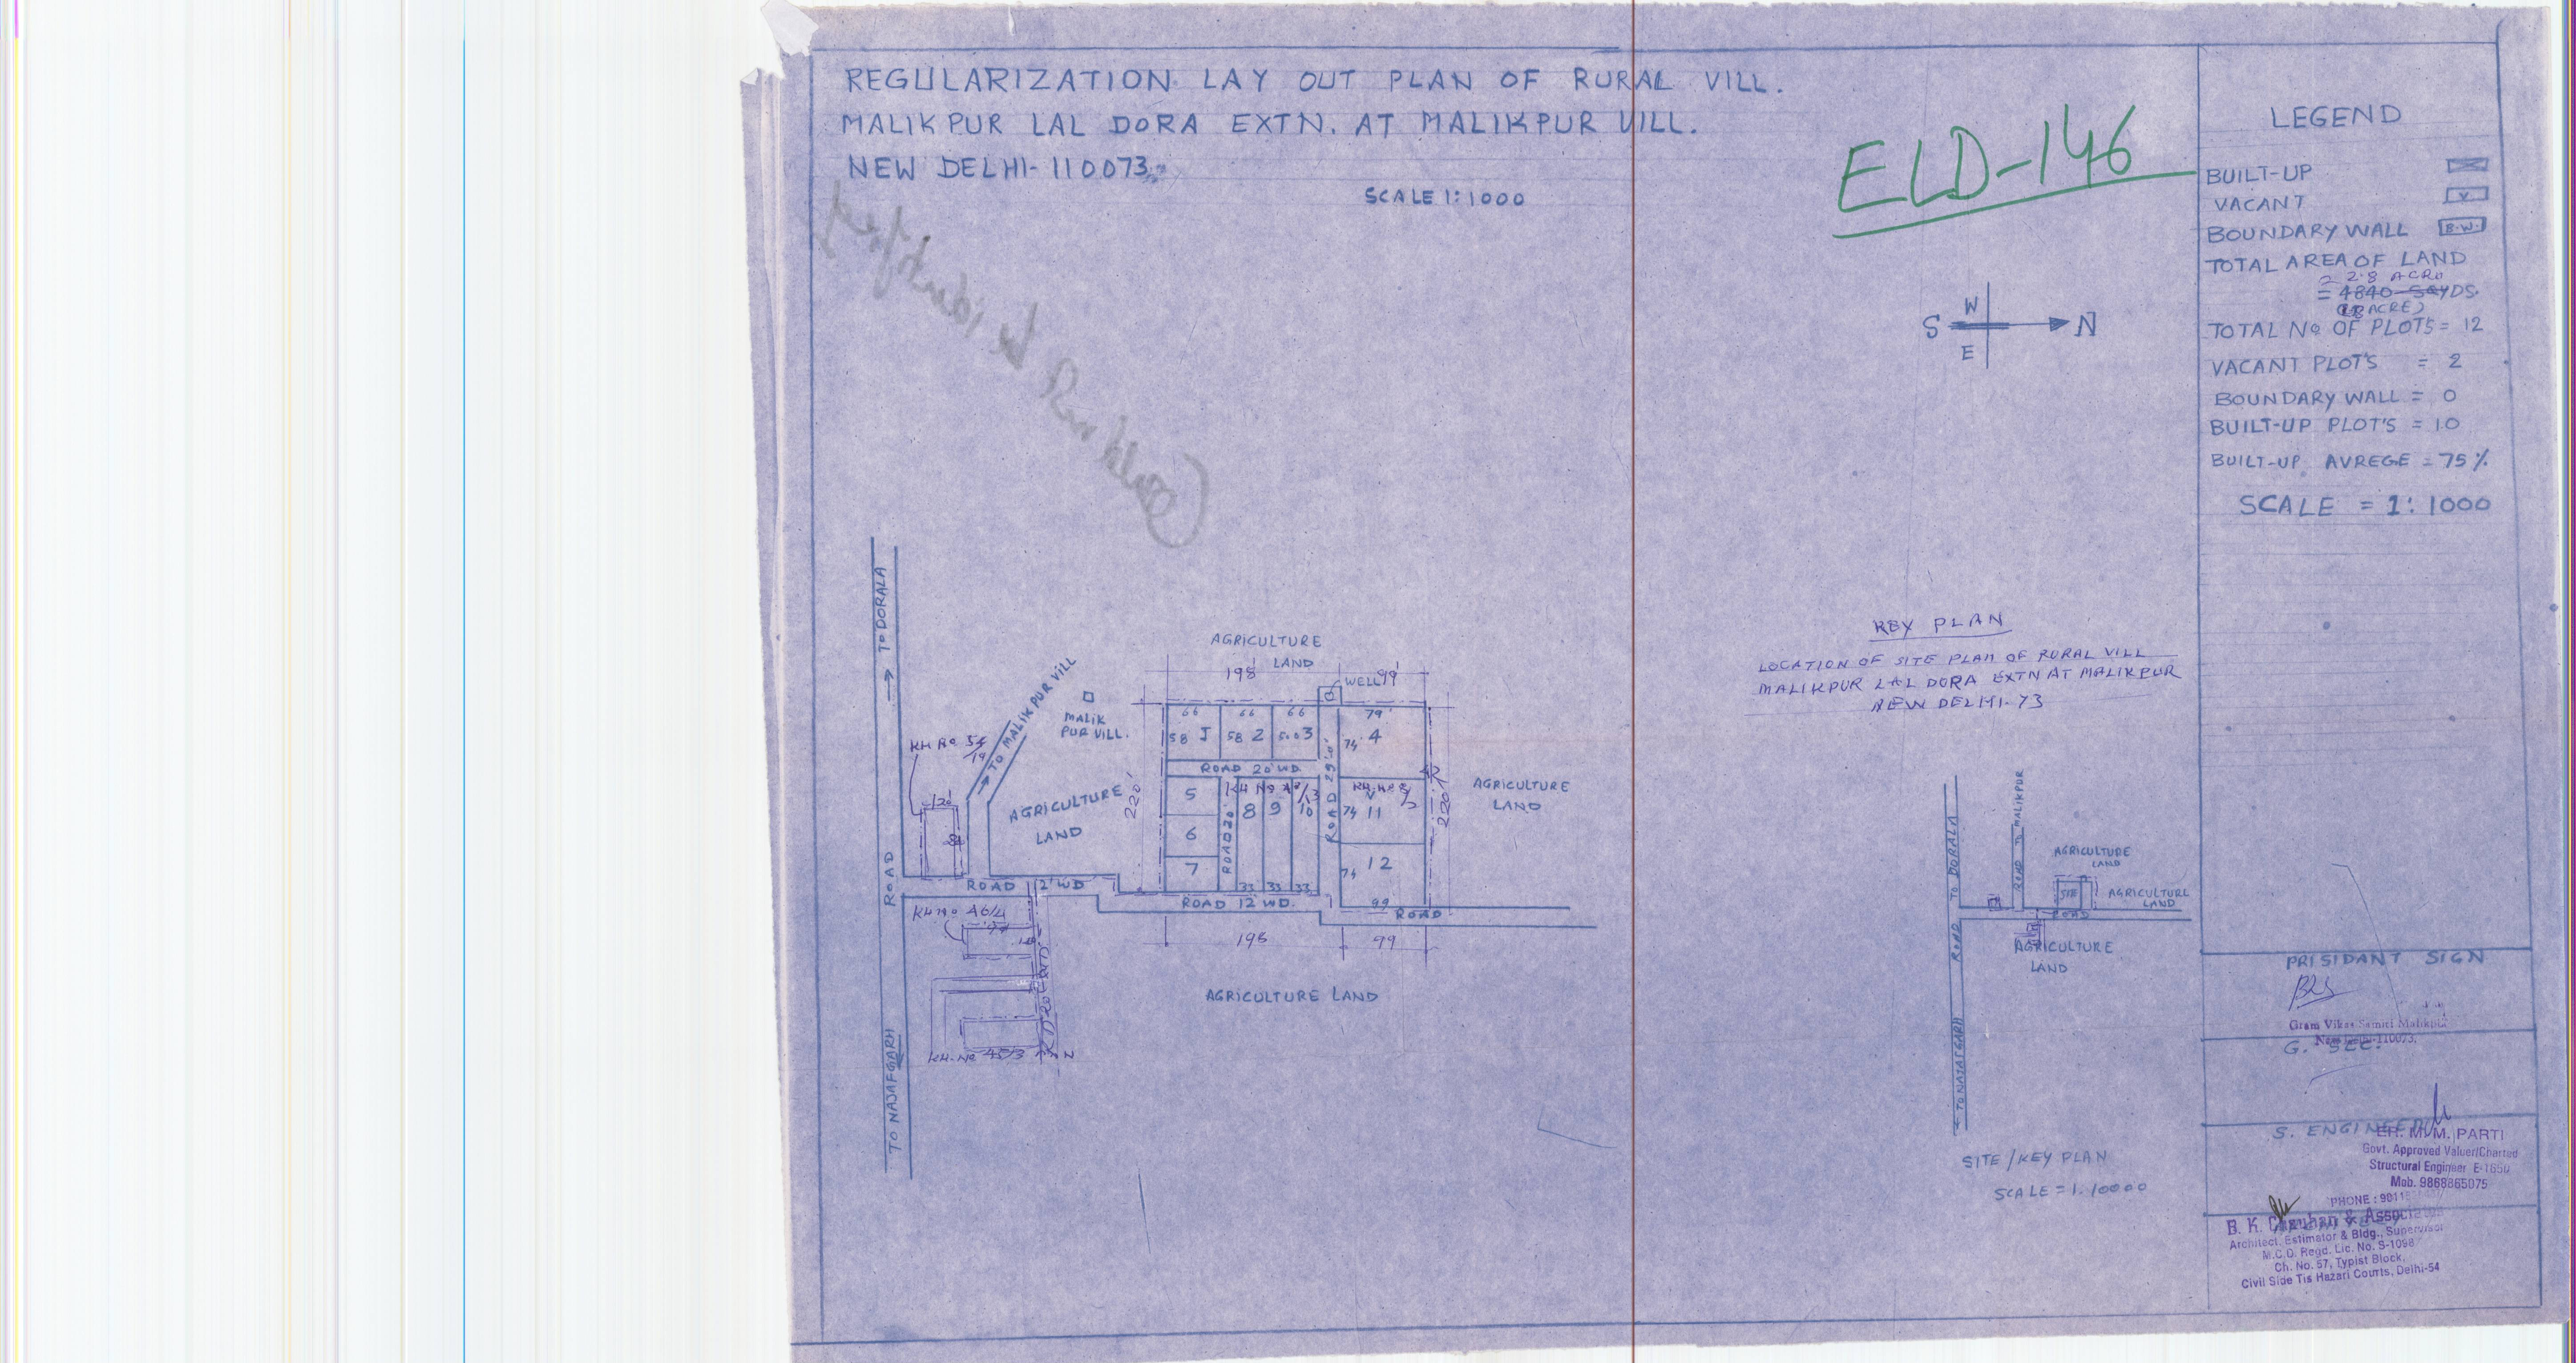 REGULARIZATION LAY OUT PLAN OF RURAL VILL.
MALIKPUR LAL DORA EXTN. AT MALIKPUR VILL.
NEW DELHI-110073
SCALE 1:1000
ELD-146
LEGEND
BUILT-UP
VACANT V
BOUNDARY WALL B.W.
TOTAL AREA OF LAND
= 2.8 ACRE
= 4840 SQYDS.
TOTAL No OF PLOTS = 12
VACANT PLOT'S = 2
BOUNDARY WALL = 0
BUILT-UP PLOT'S = 10
BUILT-UP AVREGE = 75%
SCALE = 1:1000
W
S N
E
KEY PLAN
LOCATION OF SITE PLAN OF RURAL VILL
MALIKPUR LAL DORA EXTN AT MALIKPUR
NEW DELHI-73
TO DORALA
ROAD
TO NAJAFGARH
TO MALIKPUR VILL
MALIK
PUR VILL.
AGRICULTURE
LAND
AGRICULTURE
LAND
198' 99'
WELL
66 66 66 79'
58 1 58 2 3 74 4
ROAD 20'WD.
220'
5
6
7
ROAD 20'
8 9 10
33 33 33
ROAD 25'.0'
V
74 11
74 12
99
220'
AGRICULTURE
LAND
ROAD 12'WD
ROAD 12'WD.
ROAD
198 99
AGRICULTURE LAND
120'
KH No 46/4
KH-No 45/3
TO DORALA
ROAD TO MALIKPUR
AGRICULTURE
LAND
SITE
AGRICULTURE
LAND
ROAD
AGRICULTURE
LAND
ROAD
TO NAJAFGARH
SITE/KEY PLAN
SCALE=1:10000
PRISIDANT SIGN
Gram Vikas Samiti Malikpur
New Delhi-110073.
G. SEC.
S. ENGINEER
ER. M.M. PARTI
Govt. Approved Valuer/Charted
Structural Engineer E-1650
Mob. 9868865075
B. K. Chauhan & Associates
Architect, Estimator & Bldg., Supervisor
M.C.D. Regd. Lic. No. S-1098
Ch. No. 57, Typist Block,
Civil Side Tis Hazari Courts, Delhi-54